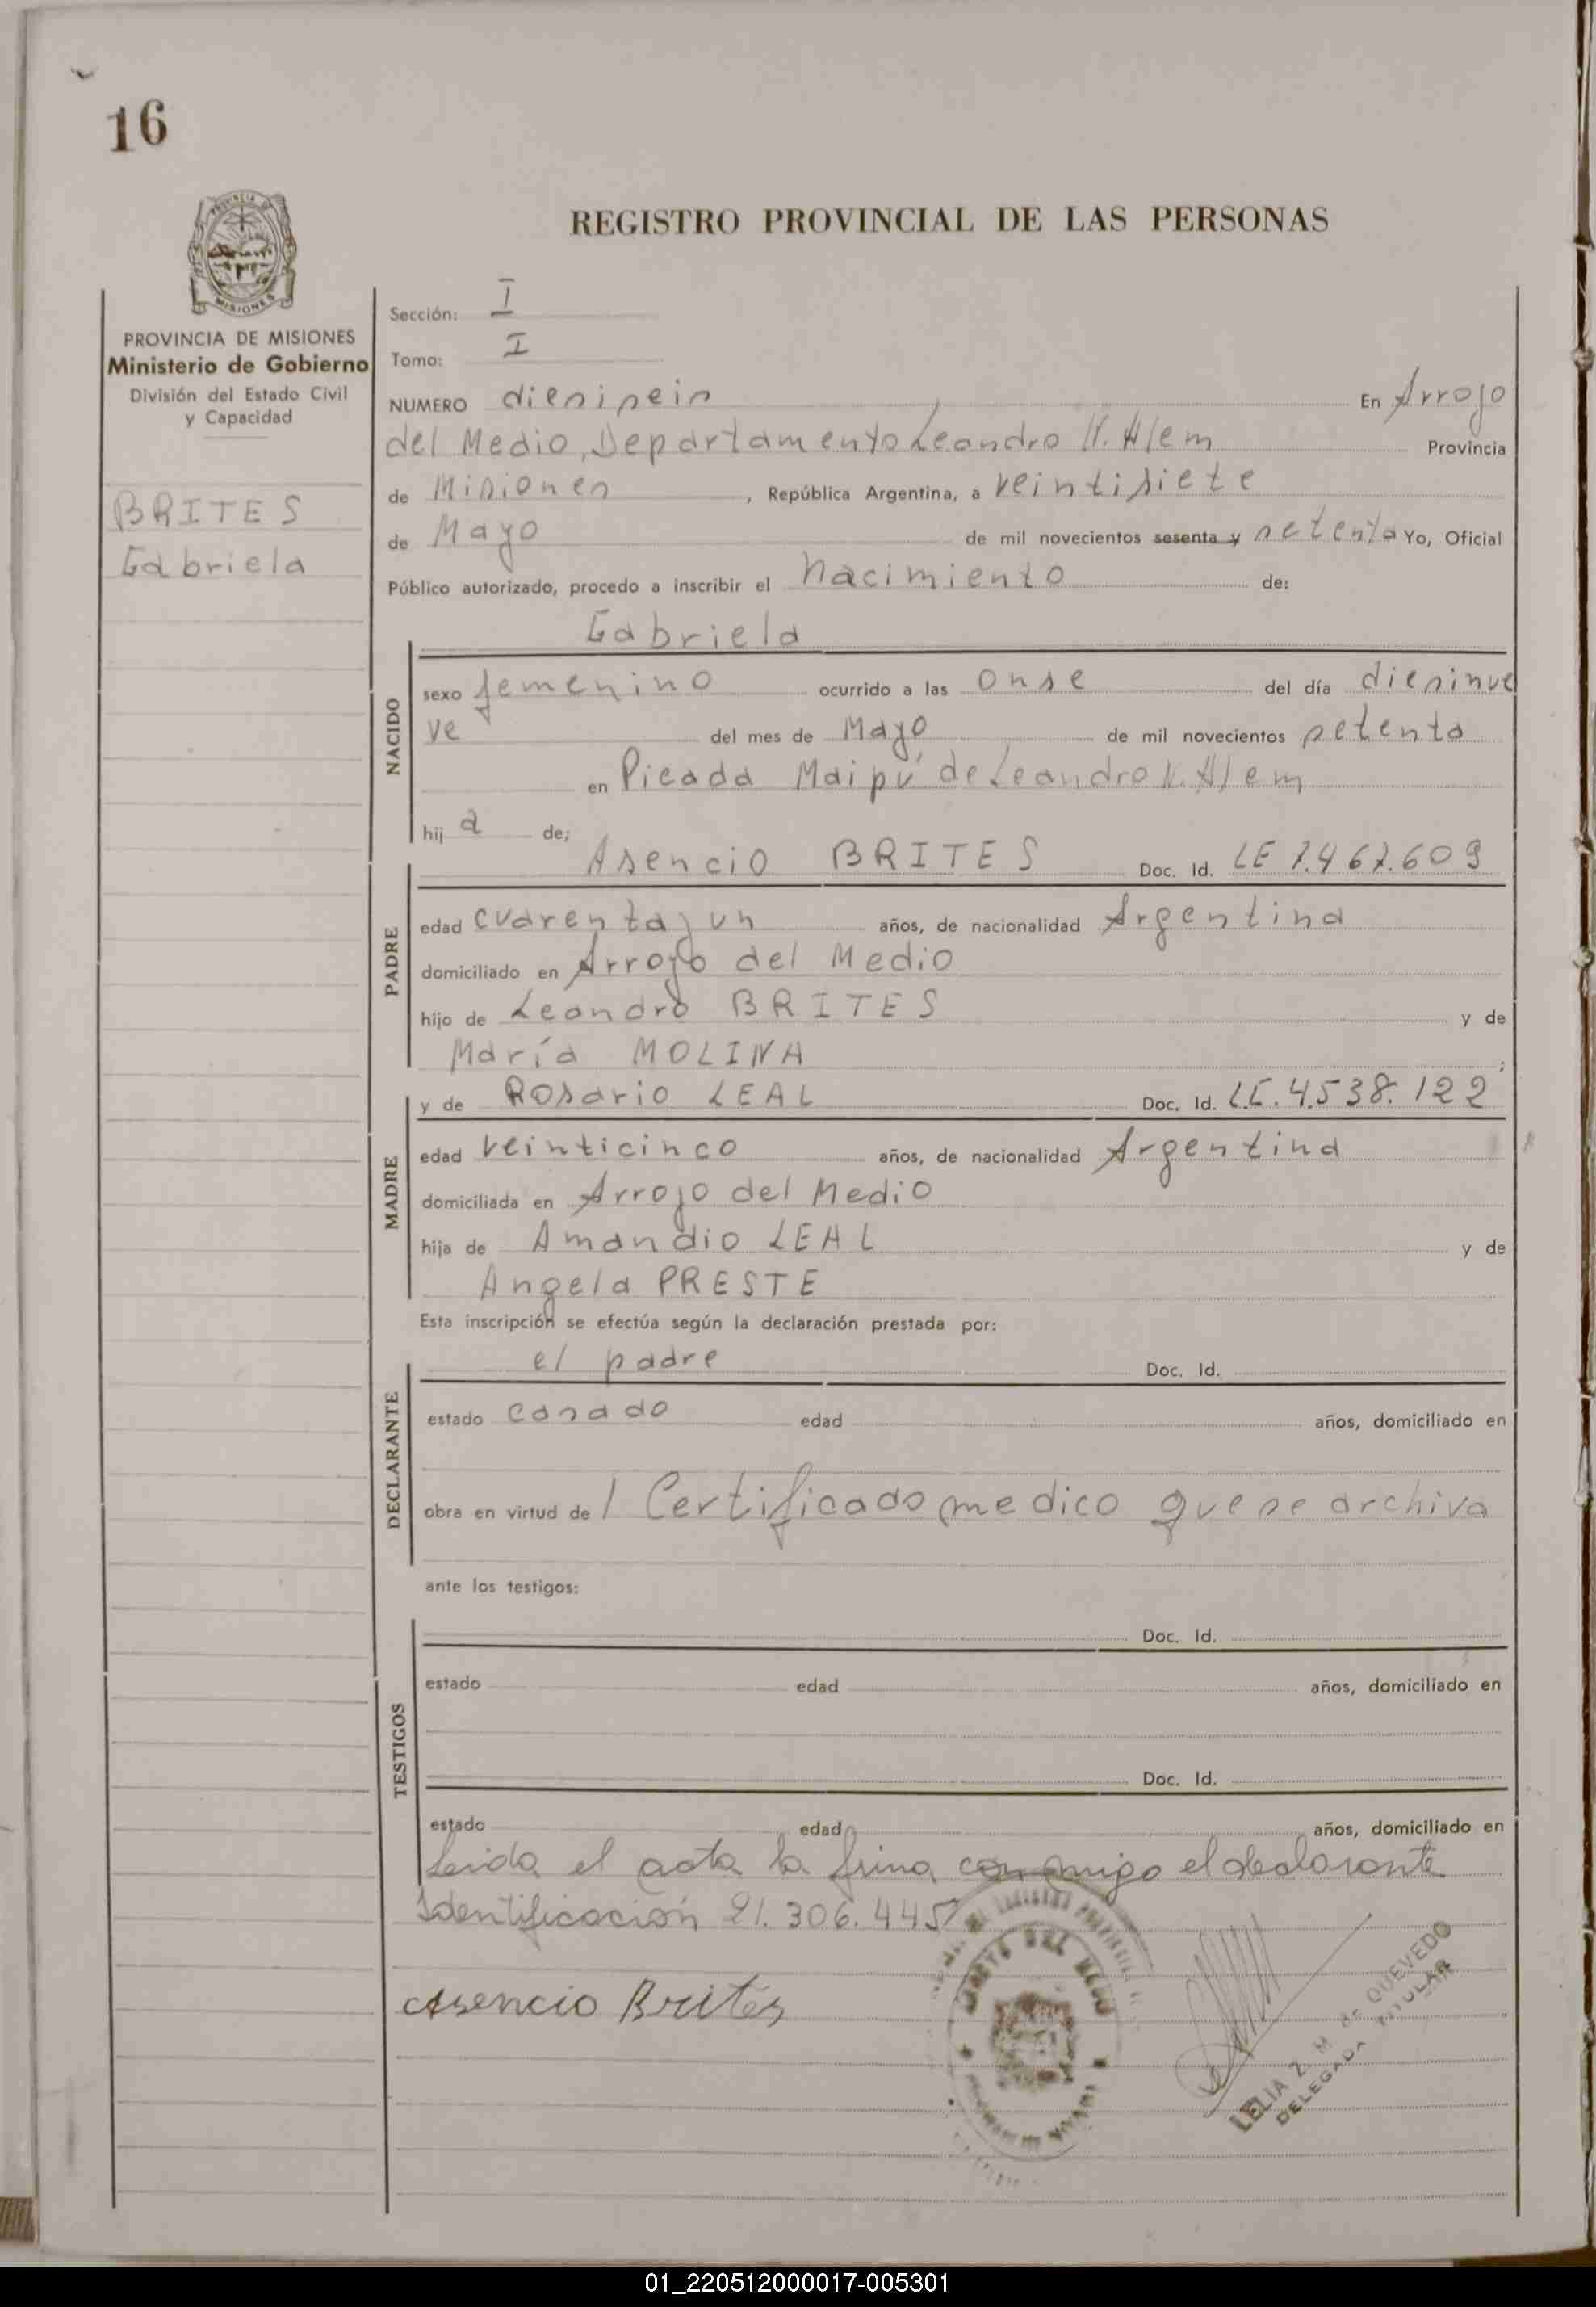 16
PROVINCIA DE
MISIONES
REGISTRO PROVINCIAL DE LAS PERSONAS
PROVINCIA DE MISIONES
Ministerio de Gobierno
División del Estado Civil
y Capacidad
BRITES
Gabriela
Sección: I
Tomo: I
NUMERO diesiseis En Arroyo
del Medio, Departamento Leandro N. Alem Provincia
de Misiones, República Argentina, a veintisiete
de Mayo de mil novecientos sesenta y setenta Yo, Oficial
Público autorizado, procedo a inscribir el nacimiento de:
Gabriela
NACIDO
sexo femenino ocurrido a las onse del día diesinue
ve del mes de Mayo de mil novecientos setenta
en Picada Maipú de Leandro N. Alem
hij a de;
Asencio BRITES Doc. Id. LE 7.467.609
PADRE
edad cuarenta y un años, de nacionalidad Argentina
domiciliado en Arroyo del Medio
hijo de Leandro BRITES y de
María MOLINA ;
y de Rosario LEAL Doc. Id. L.C. 4.538.122
MADRE
edad veinticinco años, de nacionalidad Argentina
domiciliada en Arroyo del Medio
hija de Amandio LEAL y de
Angela PRESTE
Esta inscripción se efectúa según la declaración prestada por:
el padre Doc. Id.
DECLARANTE
estado casado edad años, domiciliado en
obra en virtud de 1 Certificado medico que se archiva
ante los testigos:
Doc. Id.
TESTIGOS
estado edad años, domiciliado en
Doc. Id.
estado edad años, domiciliado en
Leida el acta la firma conmigo el declarante
Identificación 21.306.445
Asencio Brites
ARROYO DEL MEDIO
LELIA Z. M de QUEVEDO
DELEGADA TITULAR
01_220512000017-005301